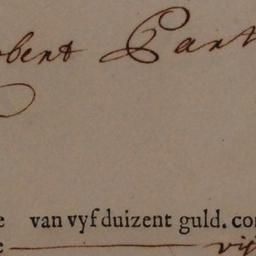 obert Part
e van vyf duizent guld. co
e vij